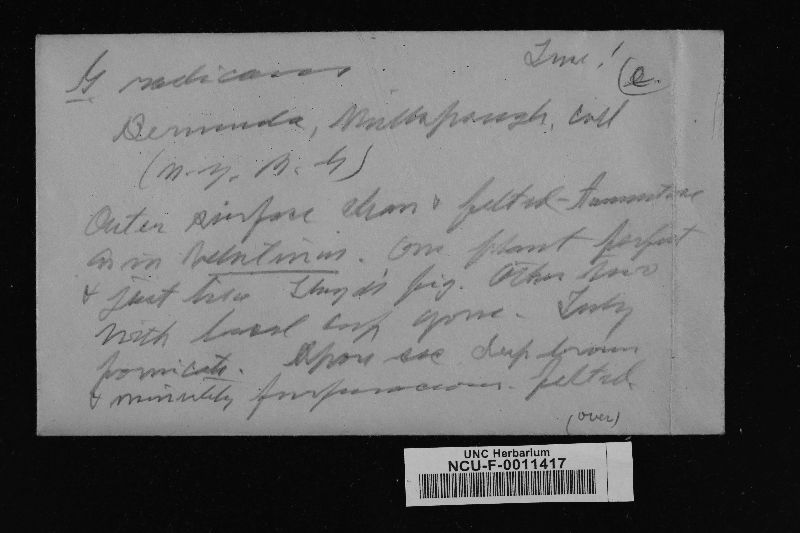 G. radicans True!
Bermuda, Millspaugh, coll
(N.Y. B. G)
Outer surface clean & felted-tomentose
as in velutinus. One plant perfect
& just like Lloyd's fig. Other two
with basal cup gone. Truly
fornicate. Spore sac deep brown
& minutely furfuraceous. felted.
(over)
UNC Herbarium
NCU-F-0011417